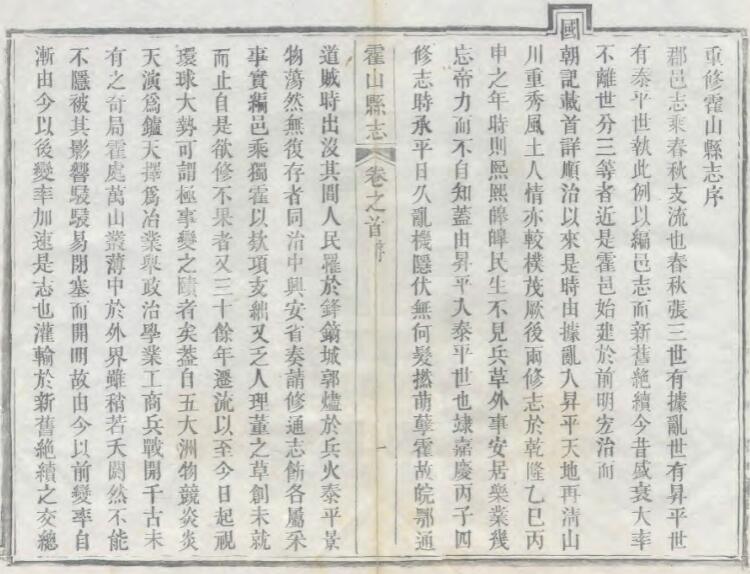 重修霍山縣志序
郡邑志乘春秋支流也春秋張三世有據亂世有昇平世
有泰平世執此例以編邑志而新舊絶續今昔盛衰大率
不離世分三等者近是霍邑始建於前明宏治而
國
朝記載首詳順治以來是時由據亂入昇平天地再淸山
川重秀風土人情亦較樸茂厥後兩修志於乾隆乙巳丙
申之年時則熙熙皥皥民生不見兵革外事安居樂業幾
忘帝力而不自知蓋由昇平入泰平世也逮嘉慶丙子四
修志時承平日久亂機隱伏無何髮撚萌孽霍故皖鄂通
霍山縣志
卷之首
序
一
道賊時出沒其間人民罹於鋒鏑城郭燼於兵火泰平景
物蕩然無復存者同治中興安省奏請修通志飭各屬采
事實編邑乘獨霍以欵項支絀又乏人理董之草創未就
而止自是欲修不果者又三十餘年遷流以至今日起視
環球大勢可謂極事變之賾者矣蓋自五大洲物競炎炎
天演爲鑪天擇爲冶業舉政治學業工商兵戰開千古未
有之奇局霍處萬山叢薄中於外界雖稍若夭閼然不能
不隱被其影響駸駸易閉塞而開明故由今以前變率自
漸由今以後變率加速是志也灌輸於新舊絶續之交總